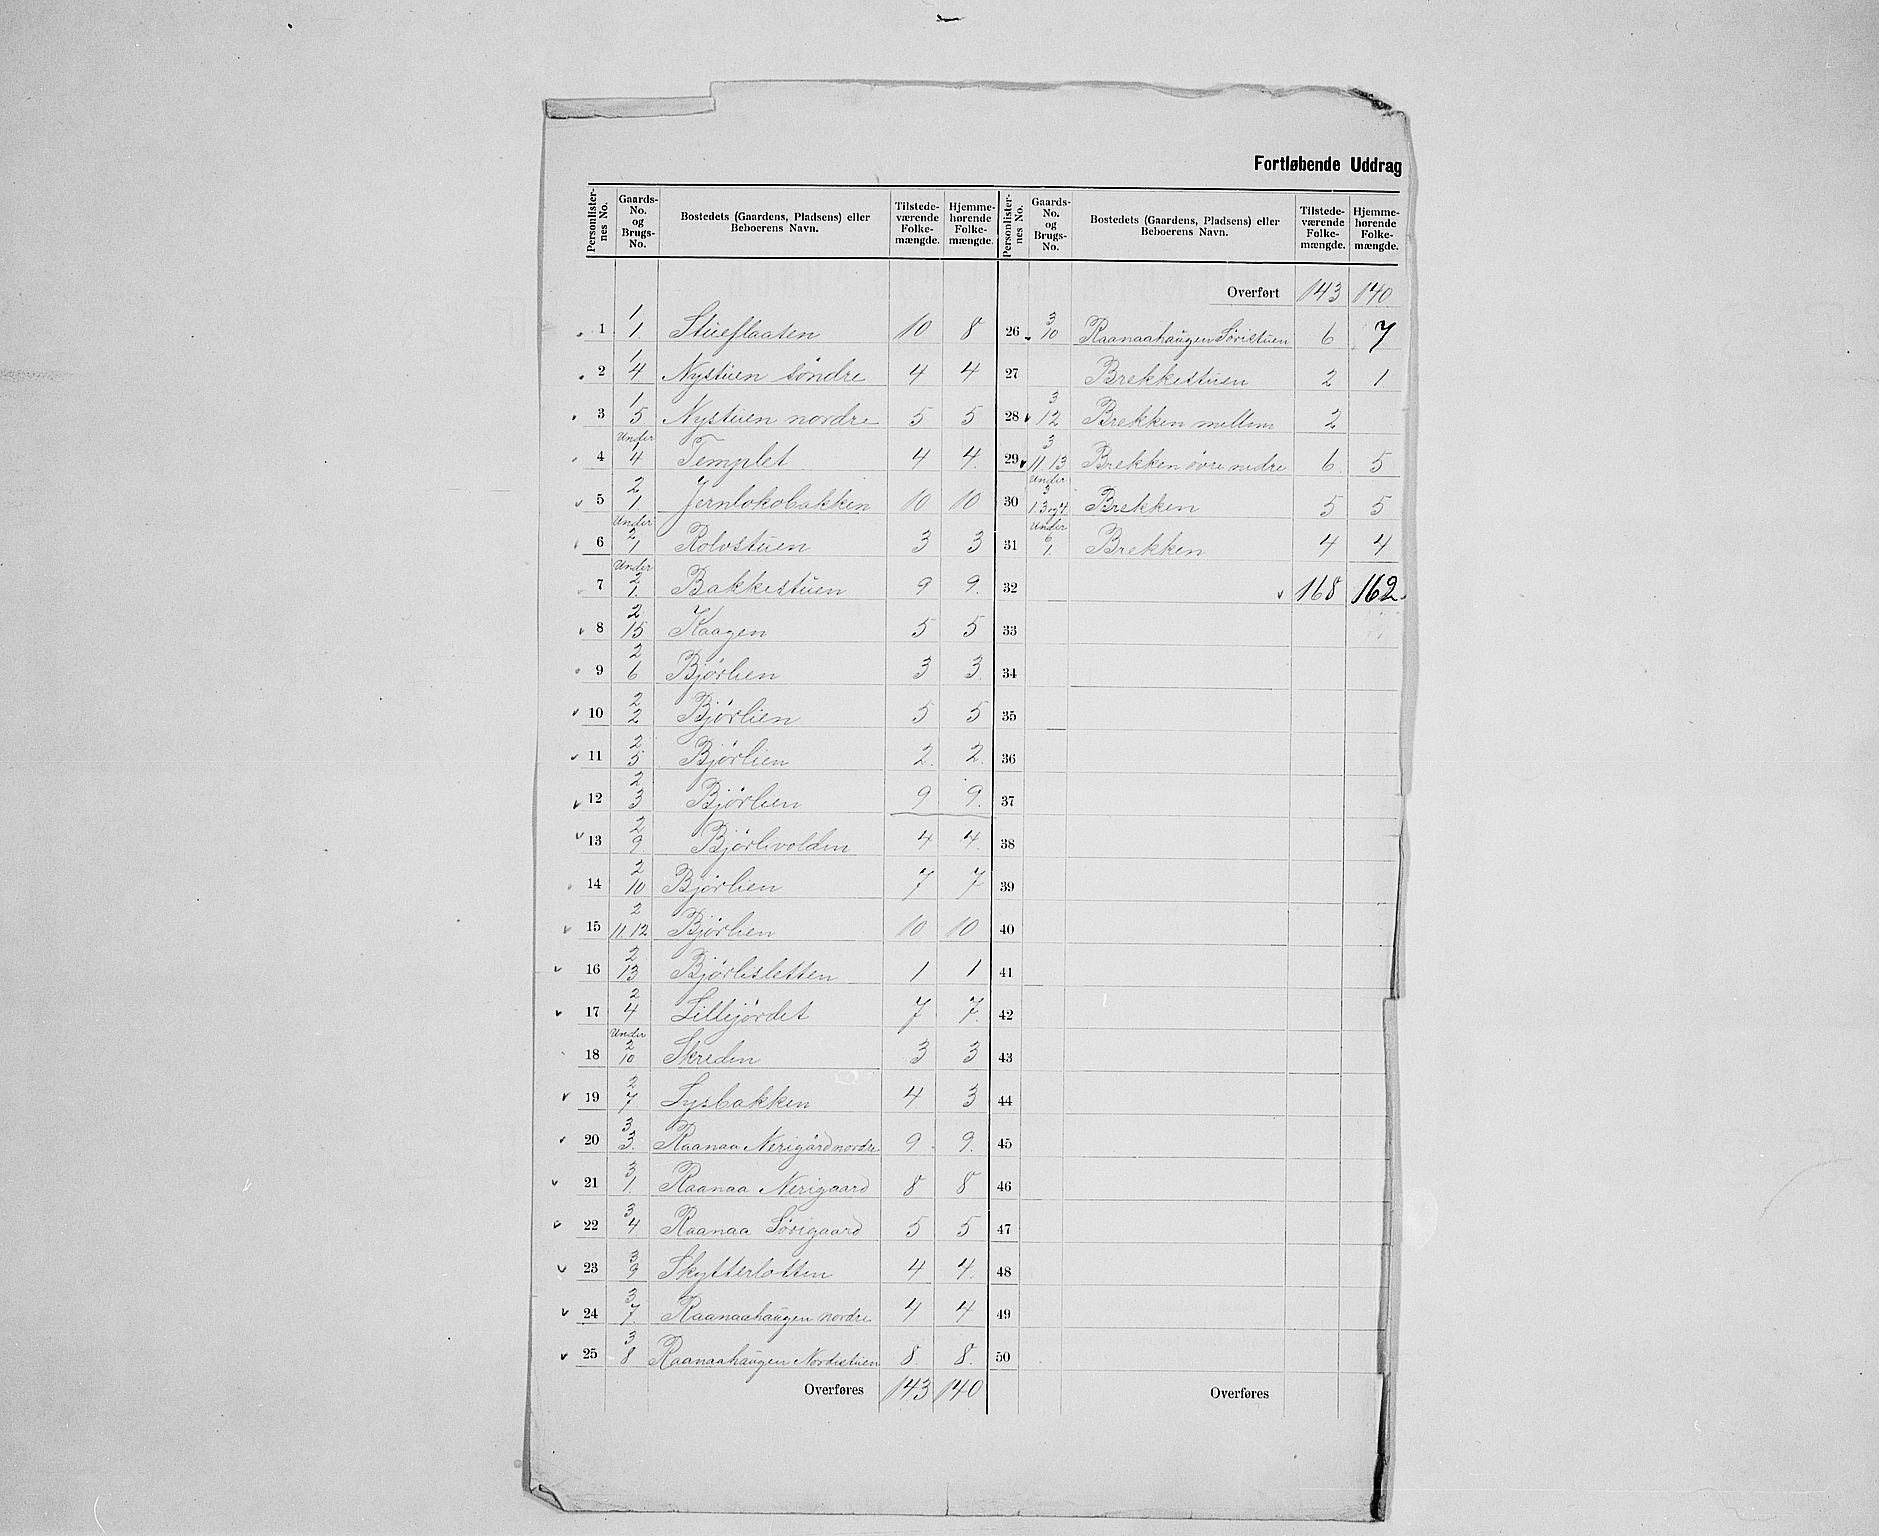 Fortløbende Uddrag
Personlister- nes No. | Gaards- No. og Brugs- No. | Bostedets (Gaardens, Pladsens) eller Beboerens Navn. | Tilstede- værende Folke- mængde. | Hjemme- hørende Folke- mængde.
1 | 1 1. | Stueflaaten | 10 | 8
2 | 1 4 | Nystuen söndre | 4 | 4
3 | 1 5 | Nystuen nordre | 5 | 5
4 | Under 1 4 | Templet | 4 | 4.
5 | 2 1 | Jernlokobakken | 10 | 10
6 | Under 2 1 | Rolvstuen | 3 | 3
7 | Under 2 1. | Bakkestuen | 9 | 9.
8 | 2 15 | Kaagen | 5 | 5
9 | 2 6 | Bjørlien | 3 | 3
10 | 2 2 | Bjørlien | 5 | 5
11 | 2 5 | Bjørlien | 2. | 2.
12 | 2 3 | Bjørlien | 9 | 9.
13 | 2 9 | Bjørlivolden | 4 | 4.
14 | 2 10 | Bjørlien | 7 | 7
15 | 2 11.12 | Bjørlien | 10 | 10
16 | 2 13 | Bjørlisletten | 1 | 1
17 | 2 4 | Lillejördet | 7 | 7.
18 | Under 2 10 | Skreden | 3 | 3
19 | 2 7 | Lysbakken | 4 | 3
20 | 3 3. | Raanaa Nerigård nordre | 9 | 9.
21 | 3 1. | Raanaa Nerigaard | 8 | 8
22 | 3 4 | Raanaa Sörigaard | 5 | 5
23 | 3 9 | Skytterlotten | 4 | 4.
24 | 3 7. | Raanaahaugen nordre | 4 | 4
25 | 3 8 | Raanaahaugen Nordistuen | 8 | 8.
Overføres | 143 | 140
Personlister- nes No. | Gaards- No. og Brugs- No. | Bostedets (Gaardens, Pladsens) eller Beboerens Navn. | Tilstede- værende Folke- mængde. | Hjemme- hørende Folke- mængde.
Overført | 143 | 140
26 | 3 10 | Raanaahaugen Söristuen | 6 | 7
27 | Brekkestuen | 2 | 1
28 | 3 12 | Brekken mellem | 2
29 | 3 11 13 | Brekken övre nedre | 6 | 5
30 | Under 3 1 3 og 4 | Brekken | 5 | 5
31 | Under 6 1 | Brekken | 4 | 4
32 | 168 | 162
33
34
35
36
37
38
39
40
41
42
43
44
45
46
47
48
49
50
Overføres